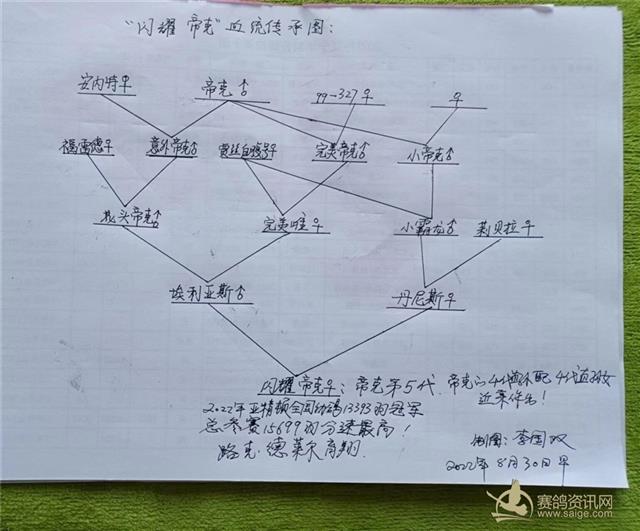 "闪耀 帝克"血统传承图:
安内特♀ 帝克♂ 99-327♀ ♀
福雷德♀ 意外帝克♂ 完美帝克♂ 小帝克♂
线头帝克♂ 完美 ♀ 小霸龙♂ 莉贝拉♀
埃利亚斯♂ 丹尼斯♀
闪耀帝克♀: 帝克第5代. 帝克的4代 配4代直 女
近亲作出!
2022年亚精顿全国幼鸽13393羽冠军
总参赛15699羽分速最高!
路克·德莱尔育翔.
制图: 李国双
2022年8月30日早
赛鸽资讯网
www.saige.com